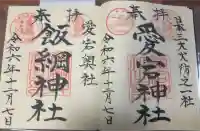 日本三大火防之一社
奉拝
愛宕神社
令和六年十二月七日
奉拝
愛宕奥社
飯綱神社
令和六年十二月七日